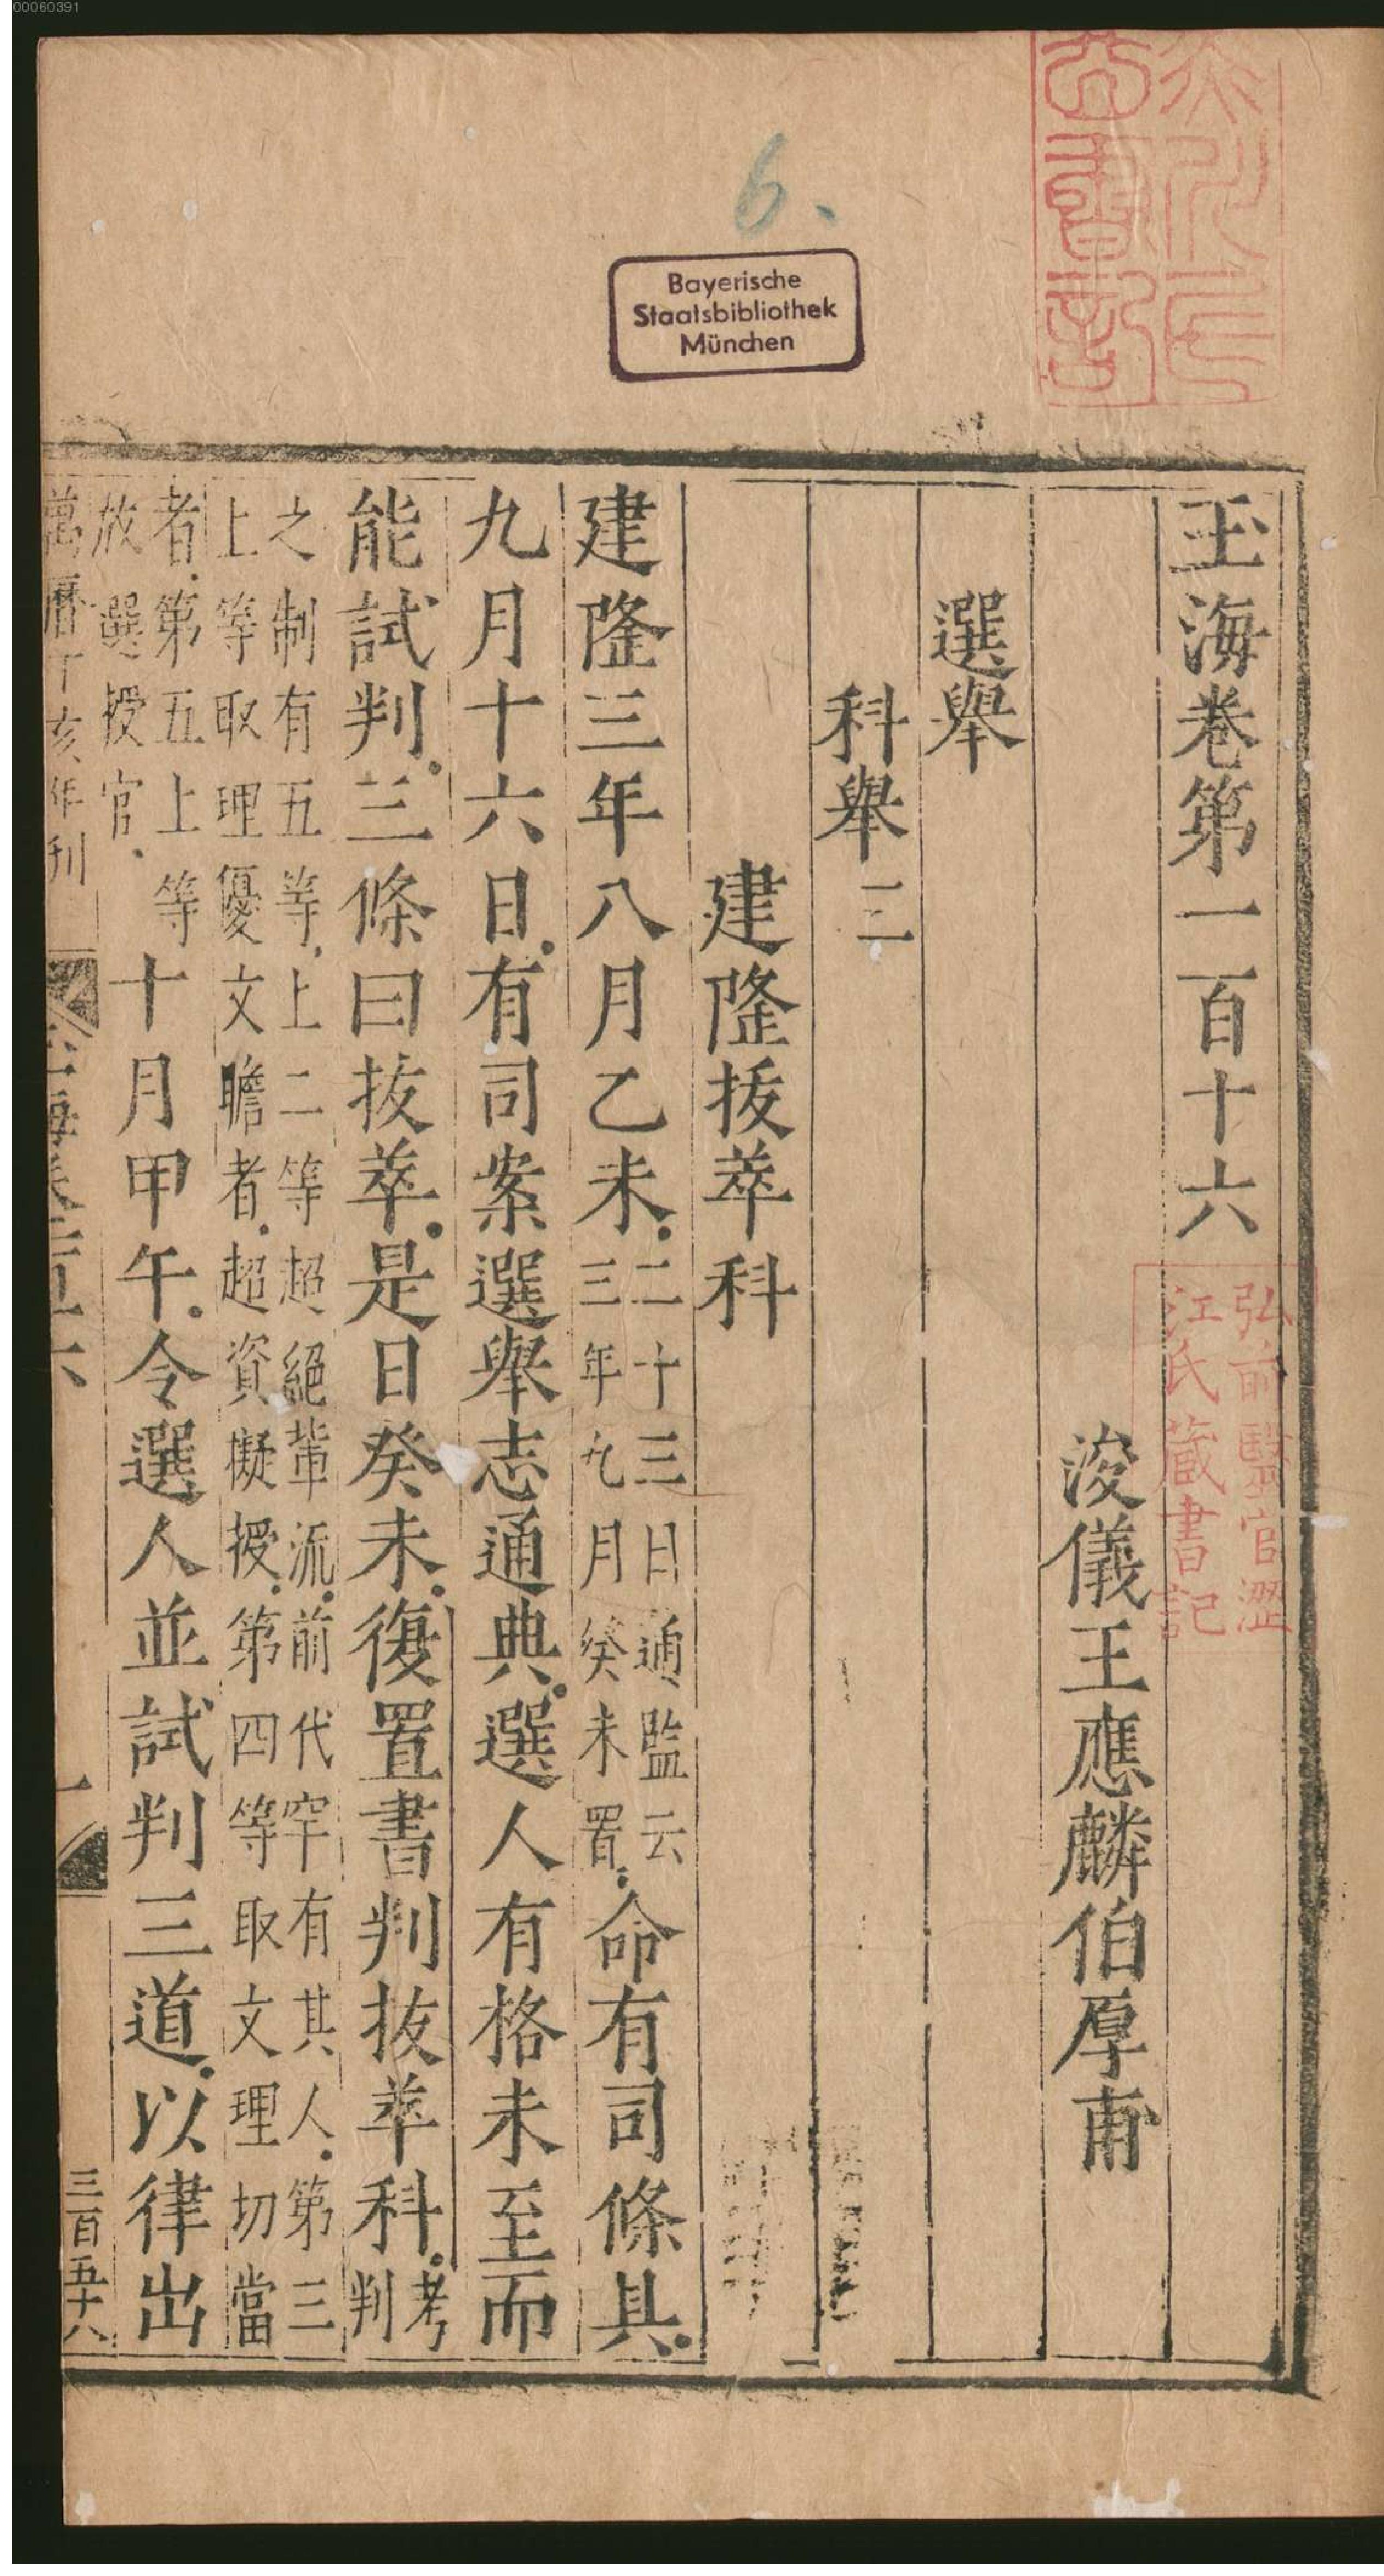 00060391
6.
Bayerische
Staatsbibliothek
München
玉海卷第一百十六
弘前醫官澀
江氏藏書記
浚儀王應麟伯厚甫
選舉
科舉三
建隆拔萃科
建隆三年八月乙未二十三日通監云三年九月癸未置命有司條具
九月十六日有司案選舉志通典選人有格未至而
能試判三條曰拔萃是日癸未復置書判拔萃科考判
之制有五等上二等超絕輩流前代罕有其人第三
上等取理優文贍者超資擬授第四等取文理切當
者第五上等放選授官十月甲午令選人並試判三道以律出
萬曆丁亥年刊
一
三百五十八